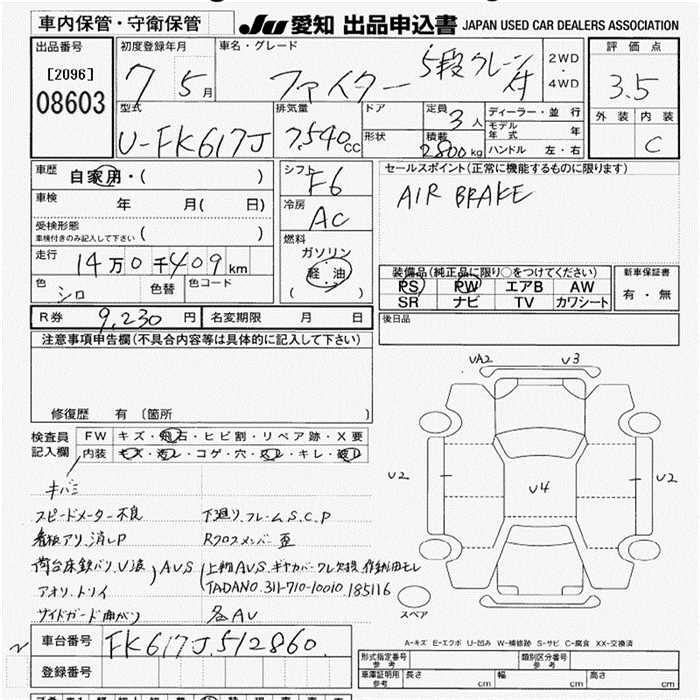 車内保管・守衛保管
JU 愛知 出品申込書 JAPAN USED CAR DEALERS ASSOCIATION
出品番号
[2096]
08603
初度登録年月
7 5月
車名・グレード
ファイター 5段クレーン付
2WD・4WD
評価点
3.5
外装 内装
C
型式
U-FK617J
排気量
7,540cc
ドア
形状
定員
3人
積載
2800kg
ディーラー・並行
モデル年式 年
ハンドル 左・右
車歴
自家用・( )
車検
年 月( 日)
受検形態
車検付きのみ記入して下さい ( )
走行
14万0千409km
色
シロ
色替
色コード
シフト
F6
冷房
AC
燃料
ガソリン
軽油
( )
セールスポイント(正常に機能するものに限ります)
AIR BRAKE
装備品(純正品に限り○をつけてください)
PS PW エアB AW
SR ナビ TV カワシート
新車保証書
有・無
R券 9,230円
名変期限 月 日
後日品
注意事項申告欄(不具合内容等は具体的に記入して下さい)
修復歴 有 〔箇所 〕
検査員記入欄
FW キズ・飛石・ヒビ割・リペア跡・X要
内装 キズ・汚レ・コゲ・穴・スレ・キレ・破レ
キバミ
スピードメーター不良
看板アリ、消しP
荷台床鉄バリ、U凹 ) AVS
アオリ、トリイ
サイドガード曲がり
下廻り、フレームS.C.P
Rクロスメンバー歪
TADANO.311-710-10010 185116
各AU
UA2 U3
U2 U4 U2
スペア
車台番号
FK617J.512860
登録番号
A-キズ E-エクボ U-凹み W-補修跡 S-サビ C-腐食 XX-交換済
形式指定番号 参考
類別区分番号 参考
車庫証明用 参考
長さ cm 幅 cm 高さ cm